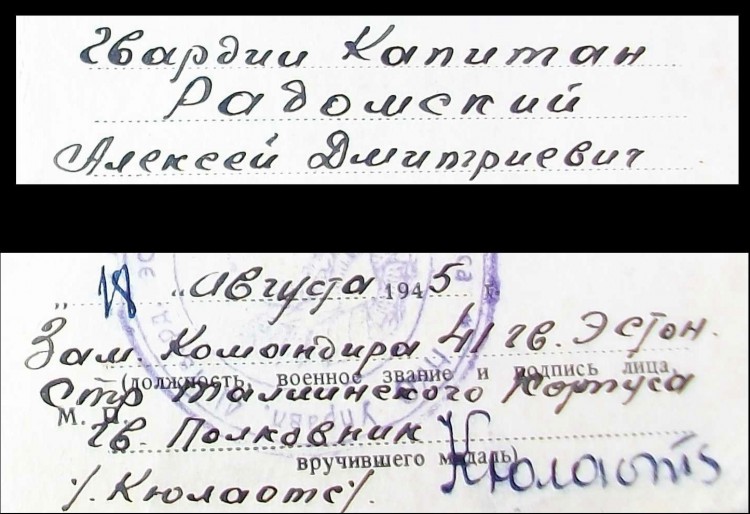 Гвардии Капитан
Радомский
Алексей Дмитриевич
„18 „ Августа 1945 г.
Зам. Командира 41 гв. Эстон.
(должность, военное звание и подпись лица,
Стр Таллинского Корпуса
М. П.
Гв. Полковник Кюлаотс
вручившего медаль)
/. Кюлаотс/.
Управл.